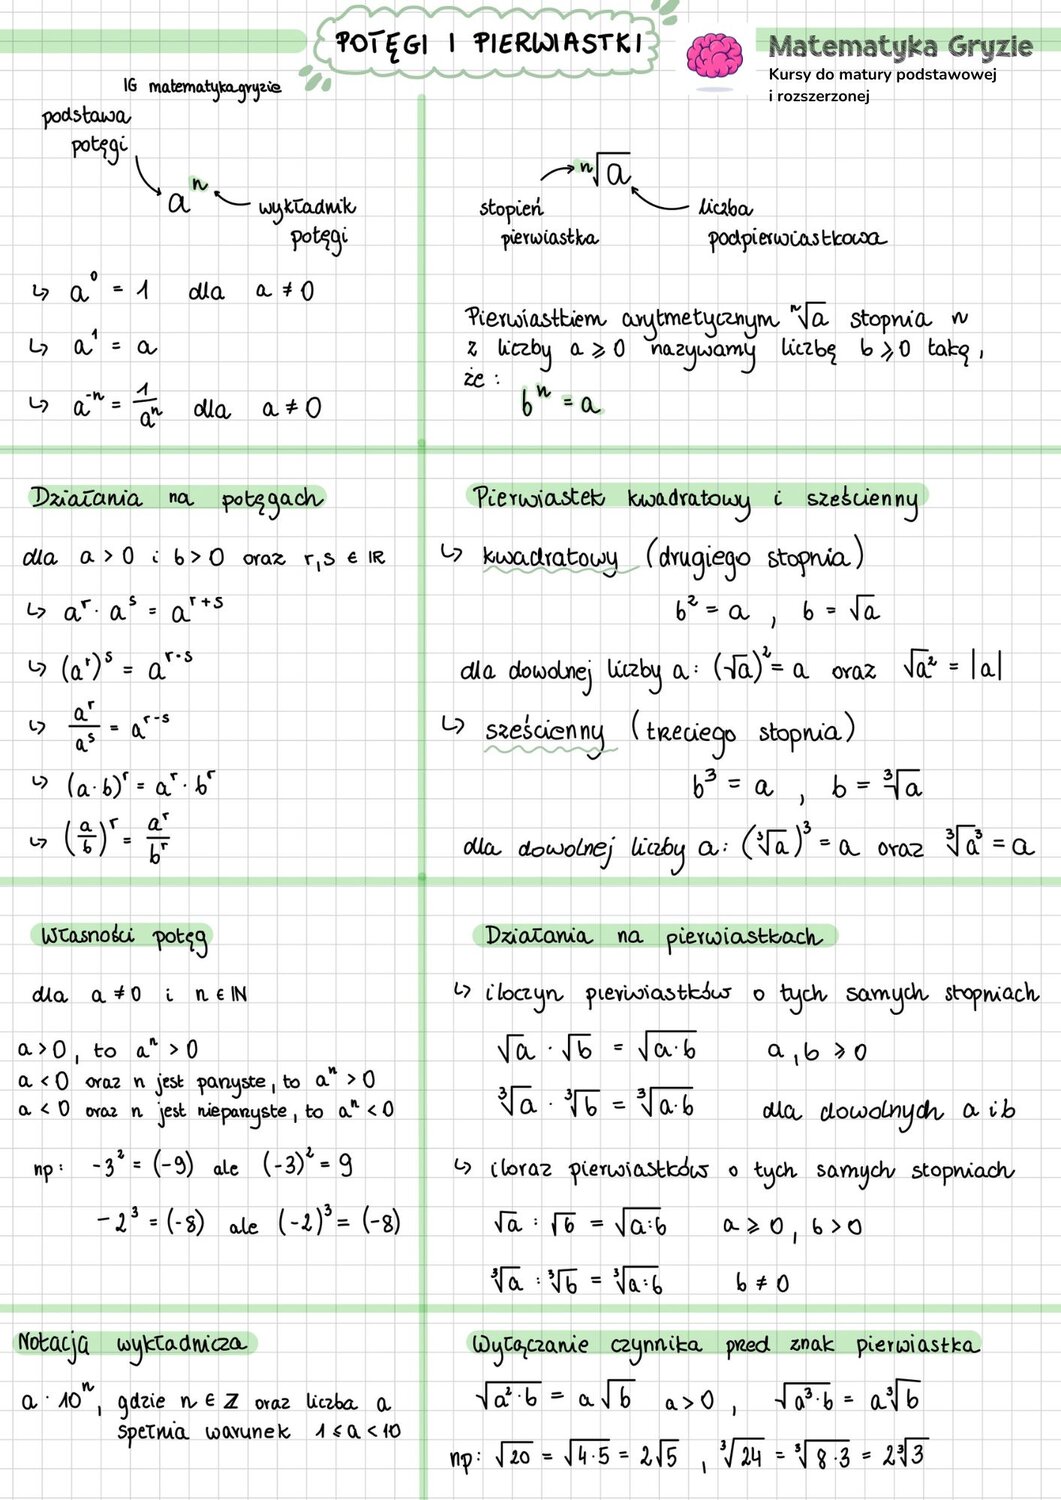 POTĘGI I PIERWIASTKI
Matematyka Gryzie
Kursy do matury podstawowej
i rozszerzonej
IG matematykagryzie
podstawa
potęgi
aⁿ
wykładnik
potęgi
↳ a⁰ = 1 dla a ≠ 0
↳ a¹ = a
↳ a⁻ⁿ = 1/aⁿ dla a ≠ 0
ⁿ√a
stopień
pierwiastka
liczba
podpierwiastkowa
Pierwiastkiem arytmetycznym ⁿ√a stopnia n
z liczby a ⩾ 0 nazywamy liczbę b ⩾ 0 taką,
że:
bⁿ = a
Działania na potęgach
dla a > 0 i b > 0 oraz r,s ∈ ℝ
↳ aʳ · aˢ = aʳ⁺ˢ
↳ (aʳ)ˢ = a^(r·s)
↳ aʳ/aˢ = aʳ⁻ˢ
↳ (a·b)ʳ = aʳ · bʳ
↳ (a/b)ʳ = aʳ/bʳ
Pierwiastek kwadratowy i sześcienny
↳ kwadratowy (drugiego stopnia)
b² = a , b = √a
dla dowolnej liczby a: (√a)² = a oraz √a² = |a|
↳ sześcienny (trzeciego stopnia)
b³ = a , b = ³√a
dla dowolnej liczby a: (³√a)³ = a oraz ³√a³ = a
Własności potęg
dla a ≠ 0 i n ∈ ℕ
a > 0, to aⁿ > 0
a < 0 oraz n jest parzyste, to aⁿ > 0
a < 0 oraz n jest nieparzyste, to aⁿ < 0
np: -3² = (-9) ale (-3)² = 9
-2³ = (-8) ale (-2)³ = (-8)
Działania na pierwiastkach
↳ iloczyn pierwiastków o tych samych stopniach
√a · √b = √a·b a,b ⩾ 0
³√a · ³√b = ³√a·b dla dowolnych a i b
↳ iloraz pierwiastków o tych samych stopniach
√a : √b = √a:b a ⩾ 0, b > 0
³√a : ³√b = ³√a:b b ≠ 0
Notacja wykładnicza
a · 10ⁿ, gdzie n ∈ ℤ oraz liczba a
spełnia warunek 1 ⩽ a < 10
Wyłączanie czynnika przed znak pierwiastka
√a²·b = a√b a > 0, √a³·b = a³√b
np: √20 = √4·5 = 2√5 , ³√24 = ³√8·3 = 2³√3